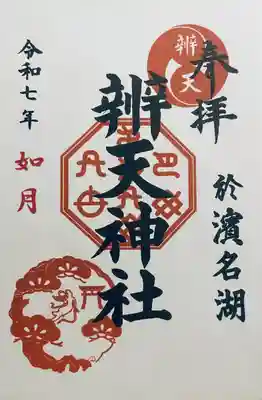 奉拝
於濱名湖
辨天
辨天神社
令和七年
如月